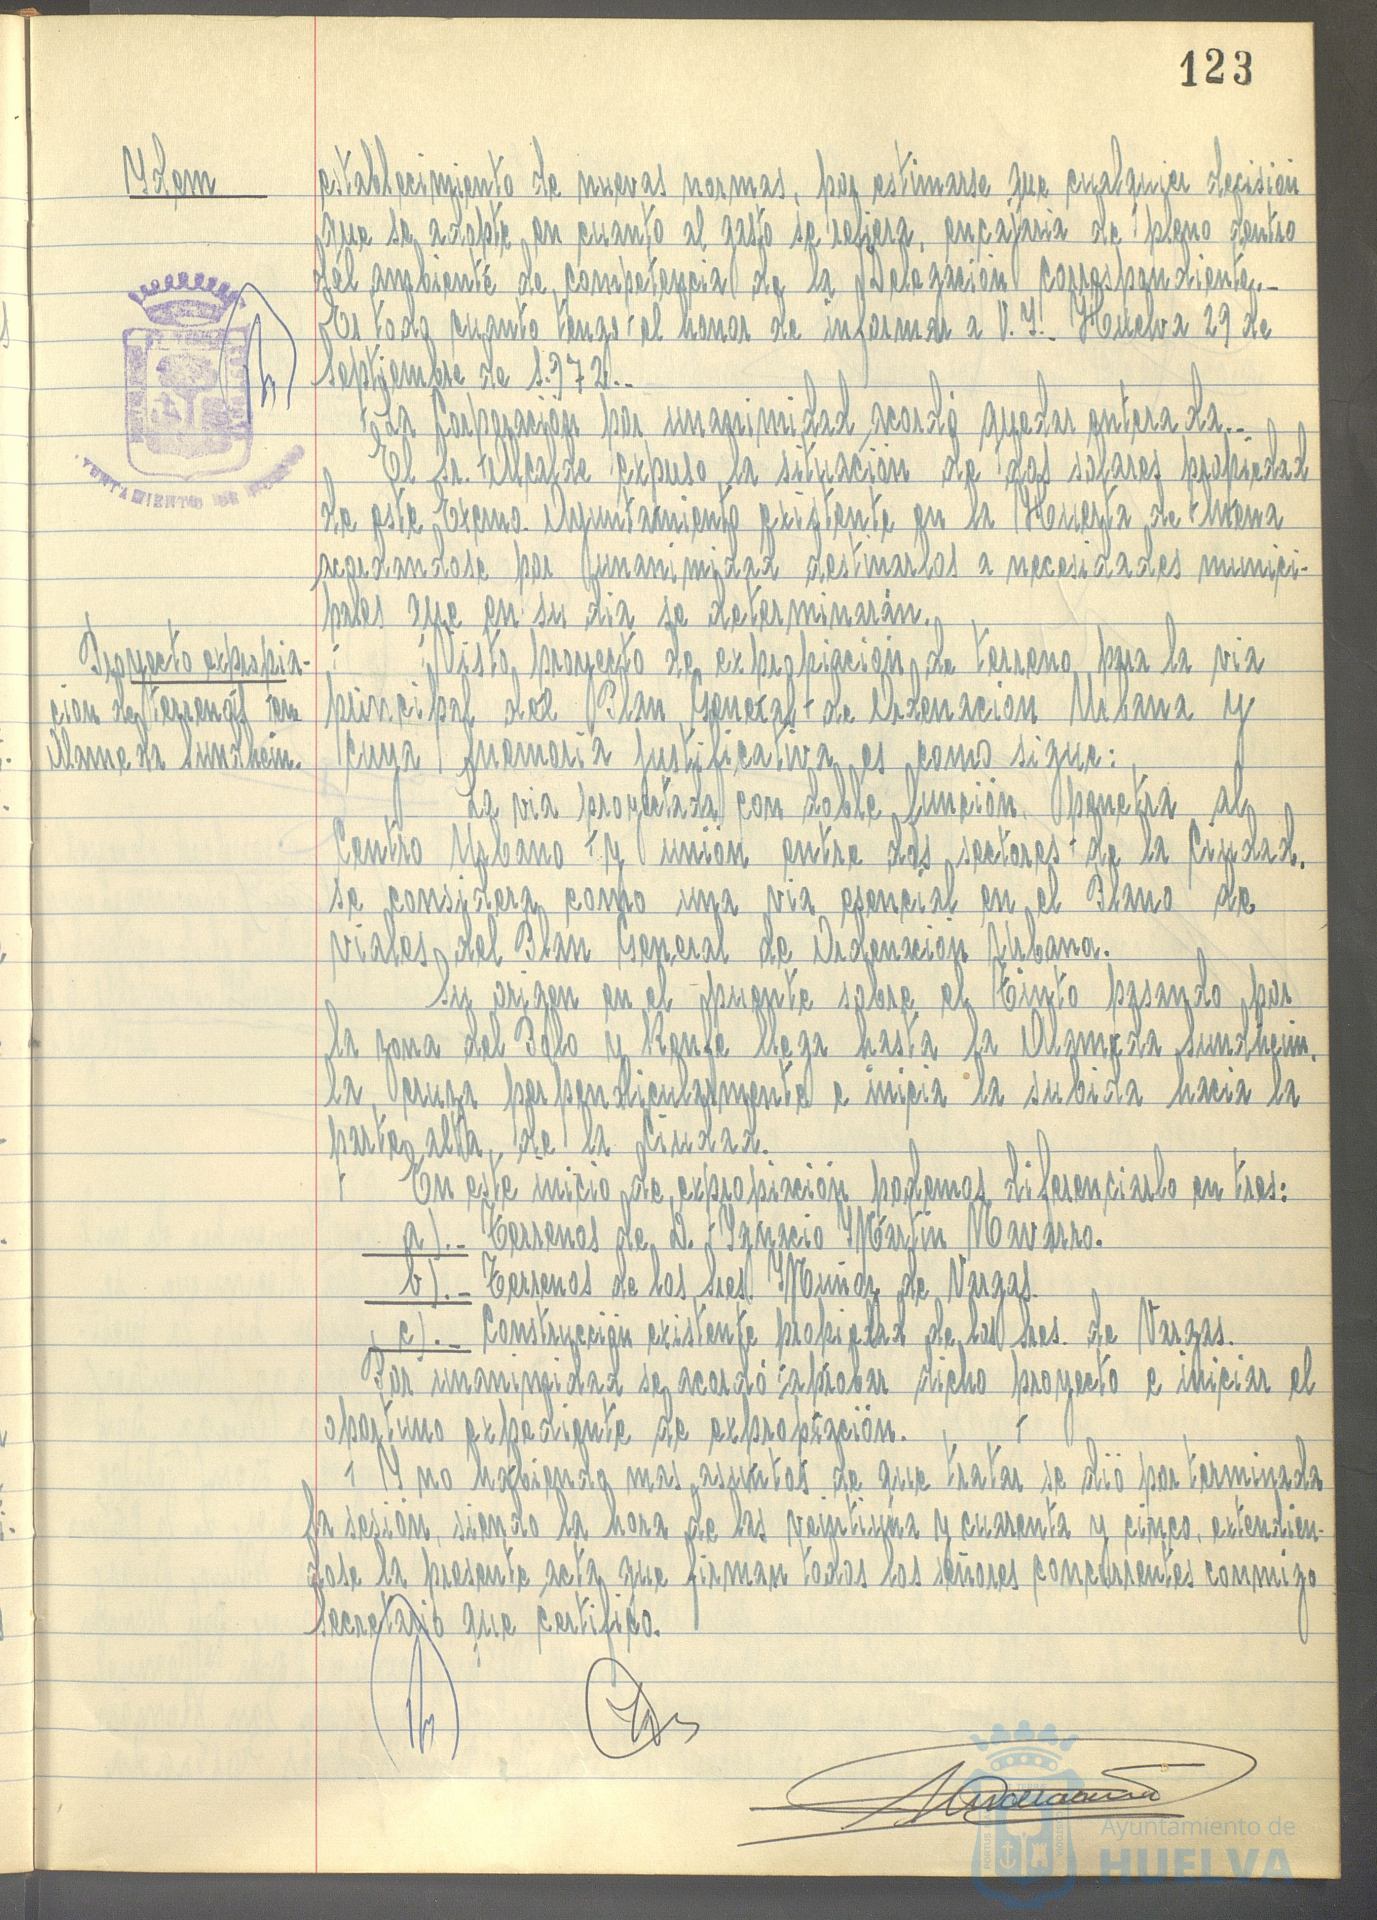 123
Ydem
establecimiento de nuevas normas, por estimarse que cualquier decisión
que se adopte en cuanto al gasto se refiera, encajaria de pleno dentro
del ambiente de competencia de la Delegación correspondiente.-
Es todo cuanto tengo el honor de informar a V.I. Huelva 29 de
septiembre de 1.972.-
La Corporación por unanimidad acordó quedar enterada.-
El Sr. Alcalde expuso la situación de dos solares propiedad
de este Excmo. Ayuntamiento existente en la Huerta de Mena
acordandose por unanimidad destinarlos a necesidades munici-
pales que en su dia se determinarán.
Proyecto expropia-
cion de terrenos en
Alameda Sundheim.
Visto proyecto de expropiación de terreno para la via
principal del Plan General de Ordenación Urbana y
cuya memoria justificativa es como sigue:
La via proyectada con doble función, penetra al
Centro Urbano y unión entre dos sectores de la Ciudad.
se considera como una via esencial en el Plano de
viales del Plan General de Ordenación Urbana.
Su origen en el puente sobre el Tinto pasando por
la zona del Polo y Renfe llega hasta la Alameda Sundheim,
la cruza perpendicularmente e inicia la subida hacia la
parte alta de la Ciudad.
En este inicio de expropiación podemos diferenciarlo en tres:
a).- Terrenos de D. Ignacio Martín Navarro.
b).- Terrenos de los Sres. Muñoz de Vargas.
c).- Construcción existente propiedad de los Sres. de Vargas.
Por unanimidad se acordó aprobar dicho proyecto e iniciar el
oportuno expediente de expropiación.
Y no habiendo mas asuntos de que tratar se dió por terminada
la sesión, siendo la hora de las veintiuna y cuarenta y cinco, extendien-
dose la presente acta que firman todos los señores concurrentes conmigo
Secretario que certifico.
Ayuntamiento de
HUELVA